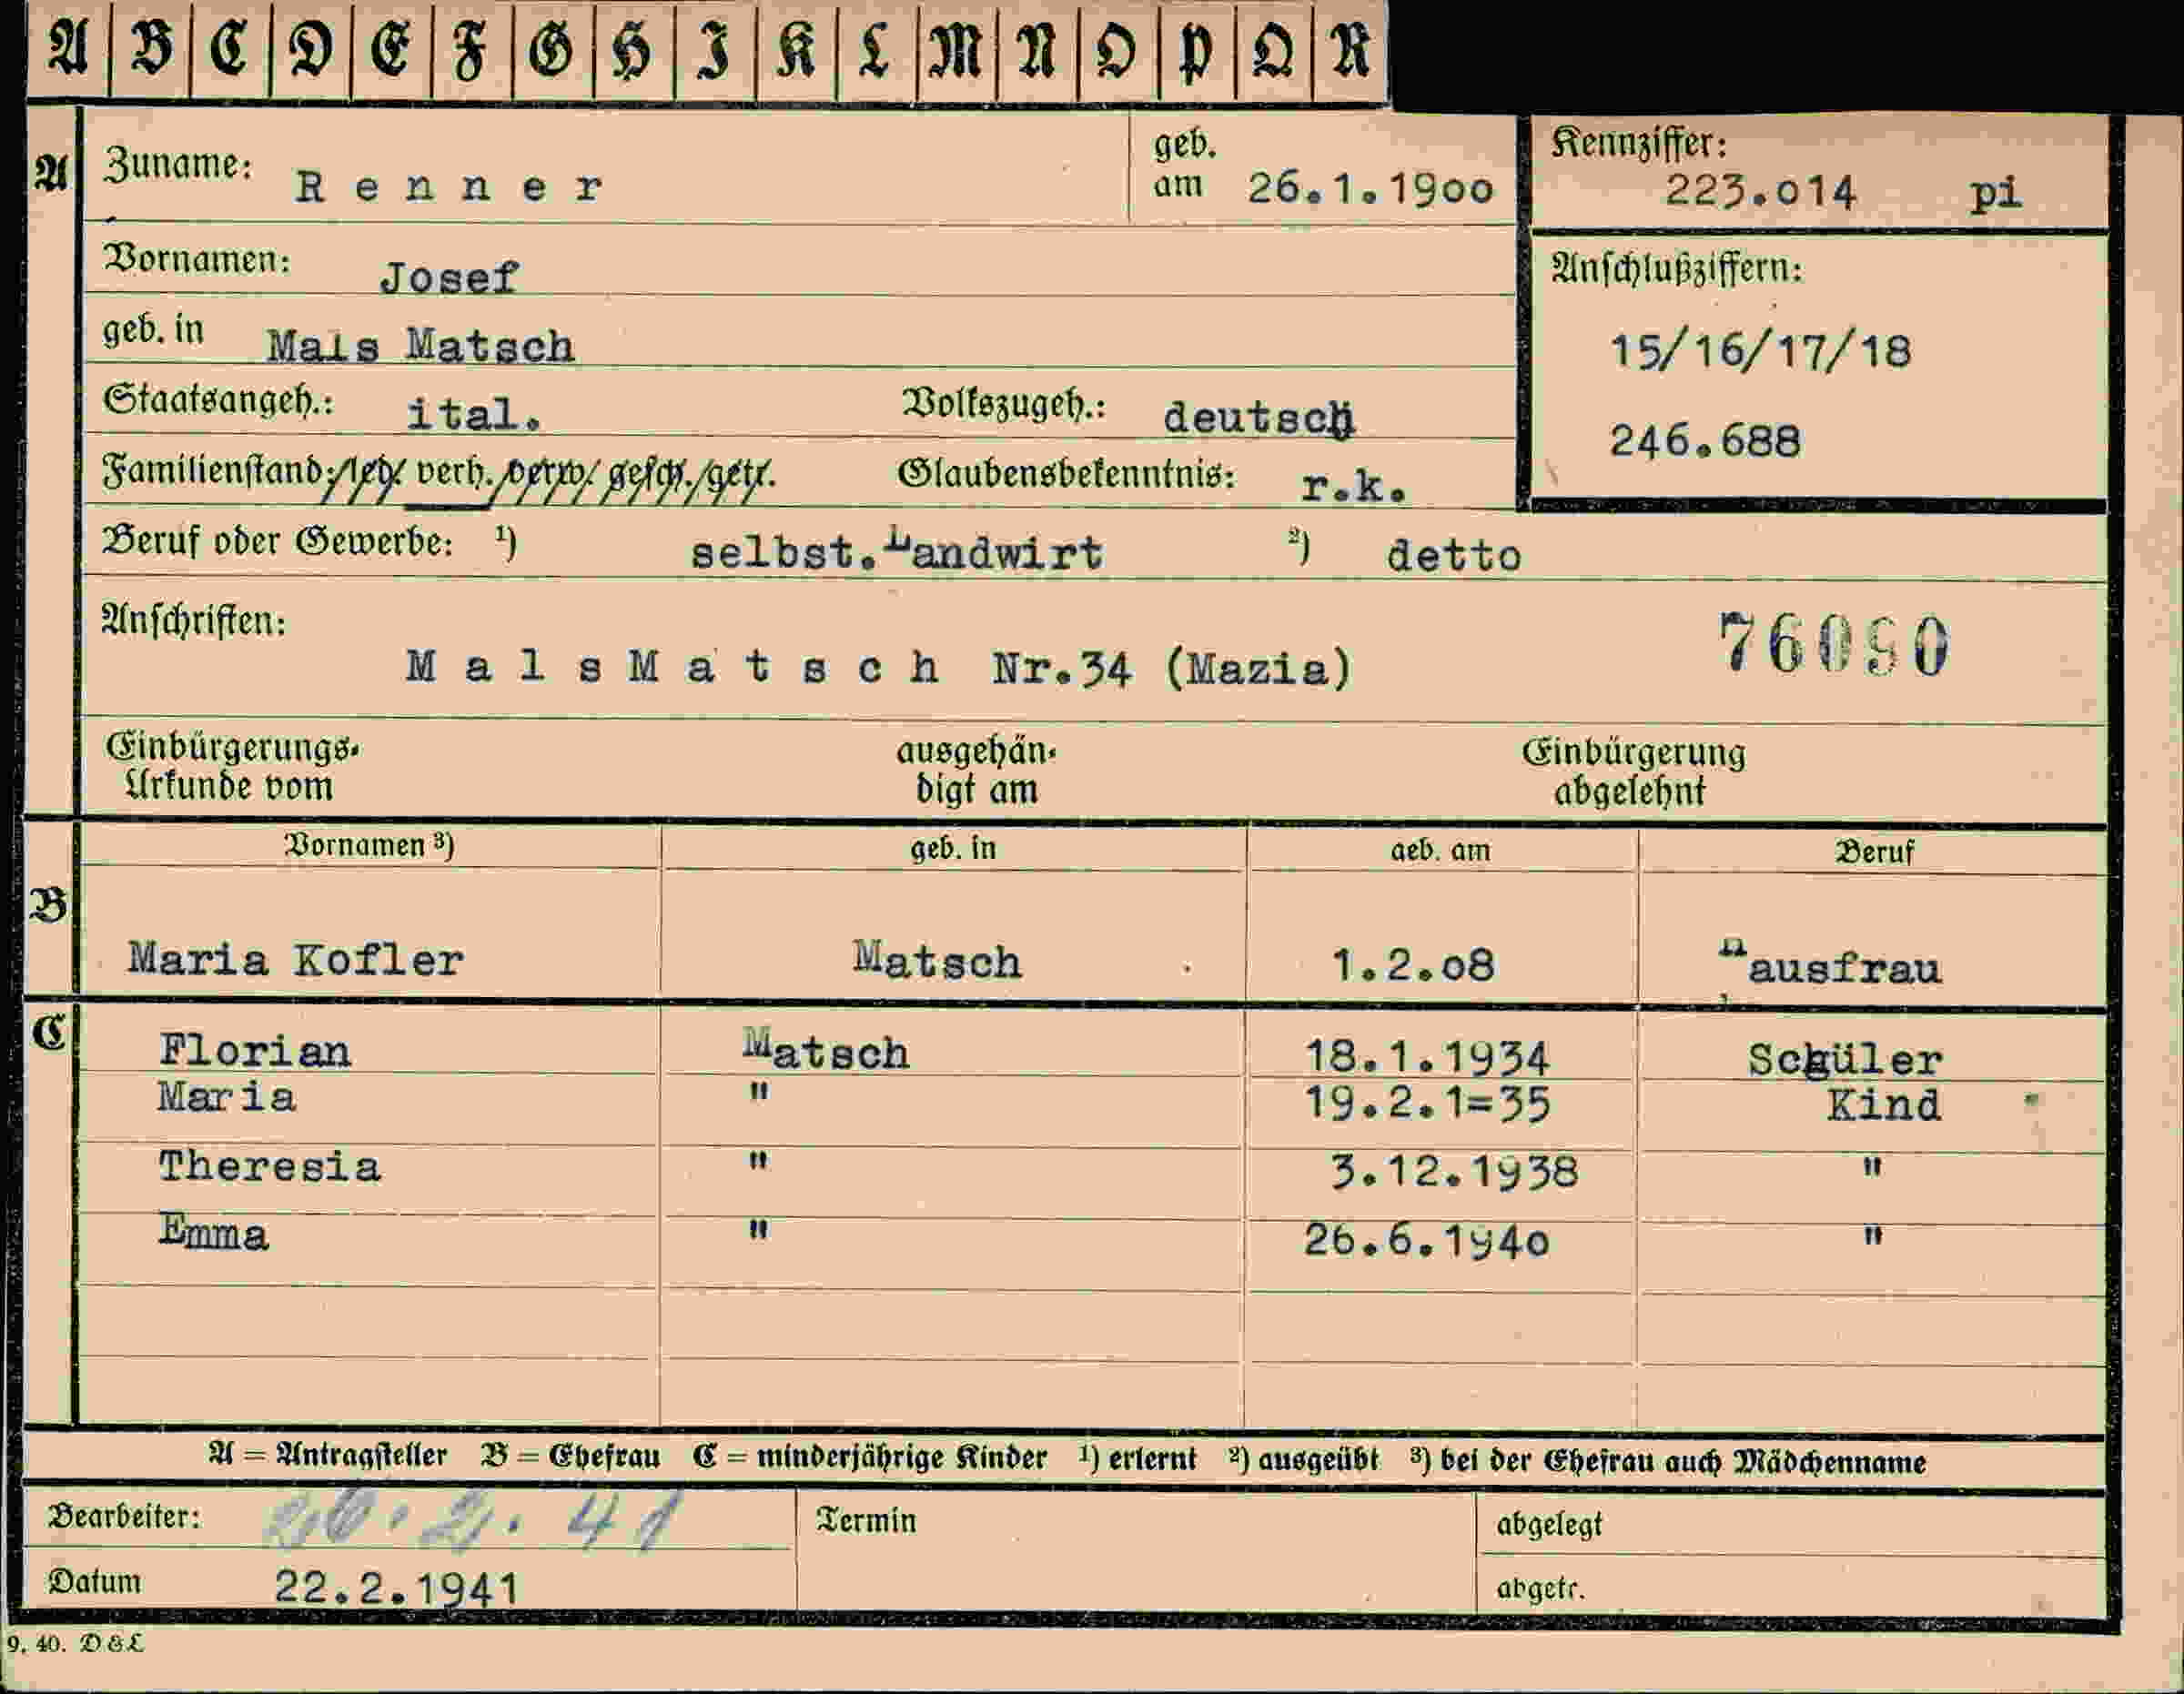 A B C D E F G H I K L M N O P Q R
A Zuname: Renner geb. am 26.1.1900 Kennziffer: 223.014 pi
Vornamen: Josef Anschlußziffern:
geb. in Mals Matsch 15/16/17/18
Staatsangeh.: ital. Volkszugeh.: deutsch 246.688
Familienstand: led. verh. verw. gesch. getr. Glaubensbekenntnis: r.k.
Beruf oder Gewerbe: ¹) selbst.Landwirt ²) detto
Anschriften: 76090
MalsMatsch Nr.34 (Mazia)
Einbürgerungs- ausgehän- Einbürgerung
Urkunde vom digt am abgelehnt
Vornamen ³) geb. in geb. am Beruf
B
Maria Kofler Matsch 1.2.08 Hausfrau
C Florian Matsch 18.1.1934 Schüler
Maria " 19.2.1=35 Kind
Theresia " 3.12.1938 "
Emma " 26.6.1940 "
A = Antragsteller B = Ehefrau C = minderjährige Kinder ¹) erlernt ²) ausgeübt ³) bei der Ehefrau auch Mädchenname
Bearbeiter: 26.2.41 Termin abgelegt
Datum 22.2.1941 abgetr.
9. 40. D&L